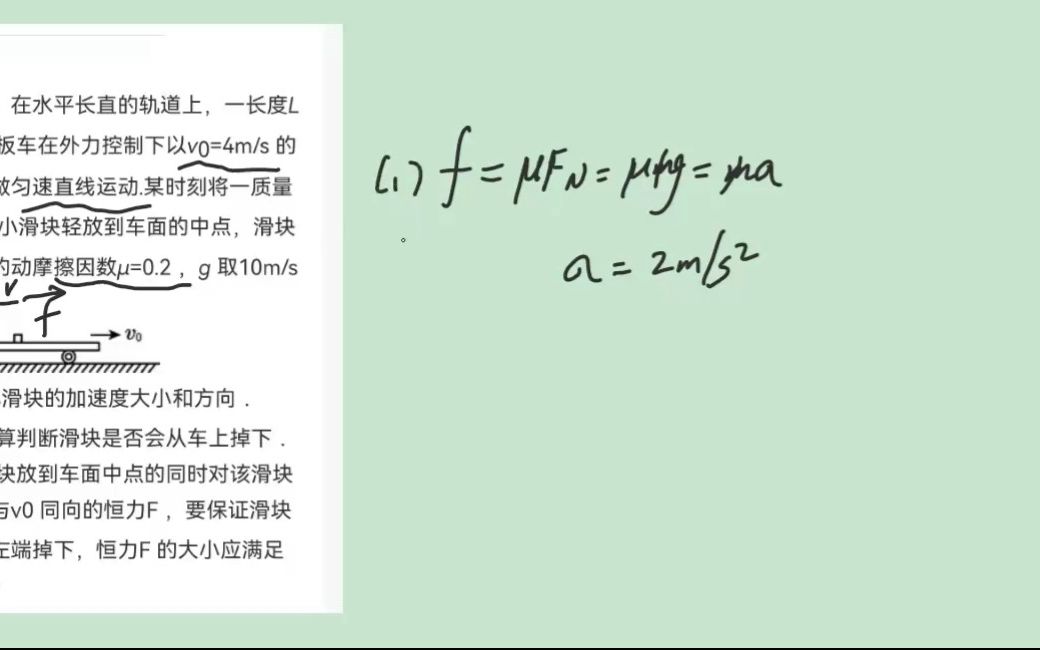 在水平长直的轨道上，一长度L
板车在外力控制下以v0=4m/s 的
做匀速直线运动.某时刻将一质量
小滑块轻放到车面的中点，滑块
的动摩擦因数μ=0.2 ，g 取10m/s
v
f
v₀
滑块的加速度大小和方向．
算判断滑块是否会从车上掉下．
块放到车面中点的同时对该滑块
与v0 同向的恒力F ，要保证滑块
左端掉下，恒力F 的大小应满足
(1) f = μF_N = μmg = ma
a = 2m/s²